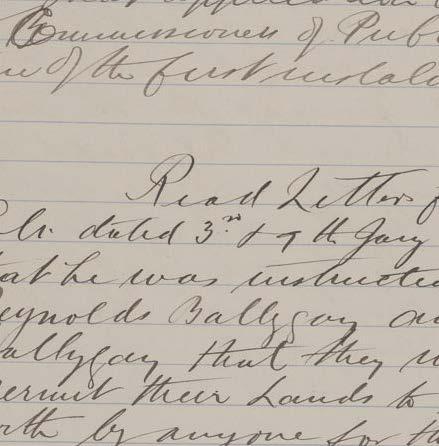 Commissioners of Pub
of the first instal
Read Letters f
dated 3rd & 9th Jany
at he was instructe
eynolds Ballygay an
allygay that they w
ermit their Lands to
by anyone for th